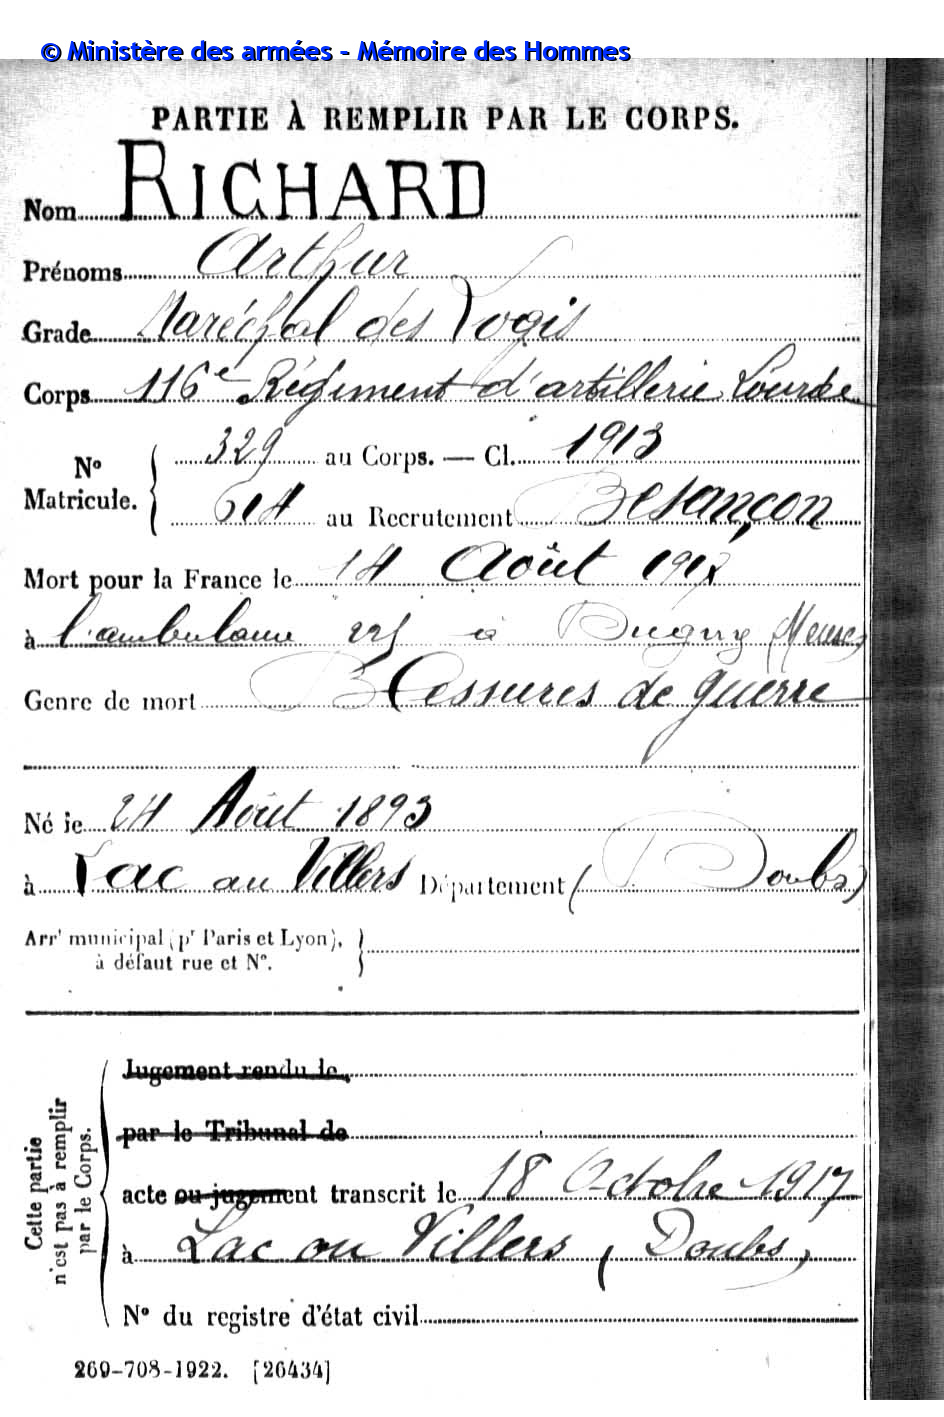 © Ministère des armées - Mémoire des Hommes
PARTIE À REMPLIR PAR LE CORPS.
Nom RICHARD
Prénoms Arthur
Grade Maréchal des Logis
Corps 116e Régiment d'artillerie Lourde
No Matricule. 329 au Corps. — Cl. 1913
614 au Recrutement Besançon
Mort pour la France le 14 Août 1917
à l'ambulance 225 à Dugny (Meuse)
Genre de mort Blessures de guerre
Né le 24 Août 1893
à Lac au Villers Département (Doubs)
Arrt municipal (pr Paris et Lyon),
à défaut rue et No.
Cette partie n'est pas à remplir par le Corps.
Jugement rendu le
par le Tribunal de
acte ou jugement transcrit le 18 Octobre 1917
à Lac ou Villers (Doubs)
No du registre d'état civil
269-708-1922. [26434]